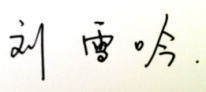 刘雪吟.